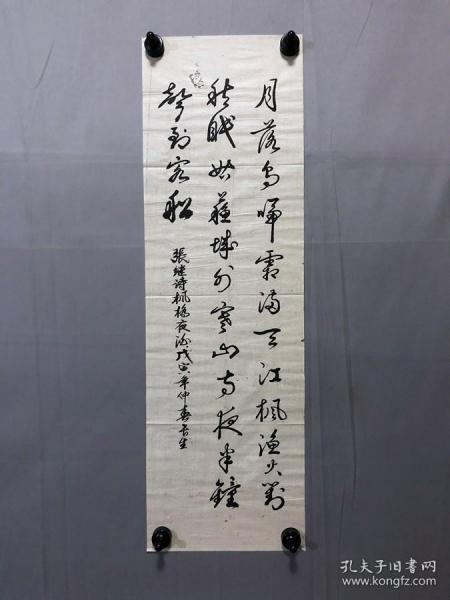 月落烏啼霜滿天江楓漁火對
愁眠姑蘇城外寒山寺夜半鐘
聲到客船
張继诗楓橋夜泊戊寅年仲春
孔夫子旧书网
www.kongfz.com